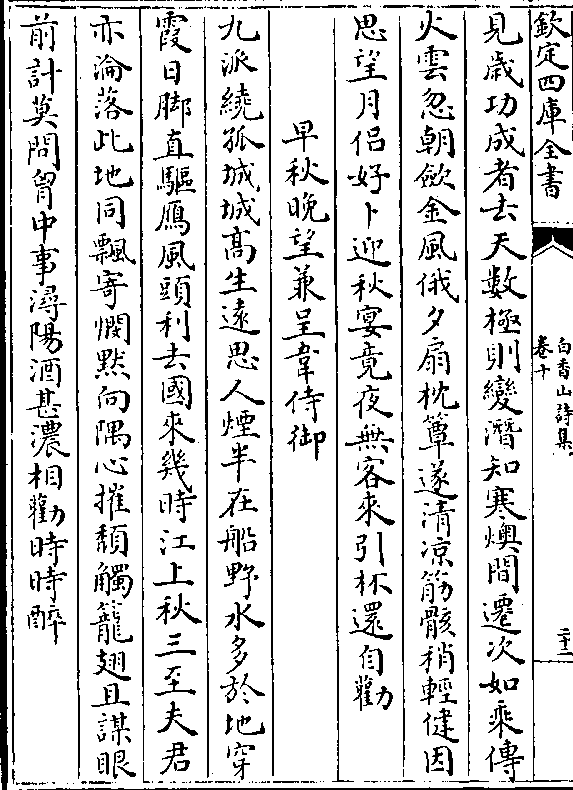 欽定四庫全書
白香山詩集
卷十
二十二
見歳功成者去天數極則變潛知寒燠間遷次如乘傳
火雲忽朝歛金風俄夕扇枕簟遂清凉筋骸稍輕健因
思望月侶好卜迎秋宴竟夜無客來引杯還自勸
早秋晚望兼呈韋侍御
九派繞孤城城髙生遠思人煙半在船野水多於地穿
霞日脚直驅鴈風頭利去國來幾時江上秋三至夫君
亦淪落此地同飄寄憫黙向隅心摧頽觸籠翅且謀眼
前計莫問胷中事潯陽酒甚濃相勸時時醉